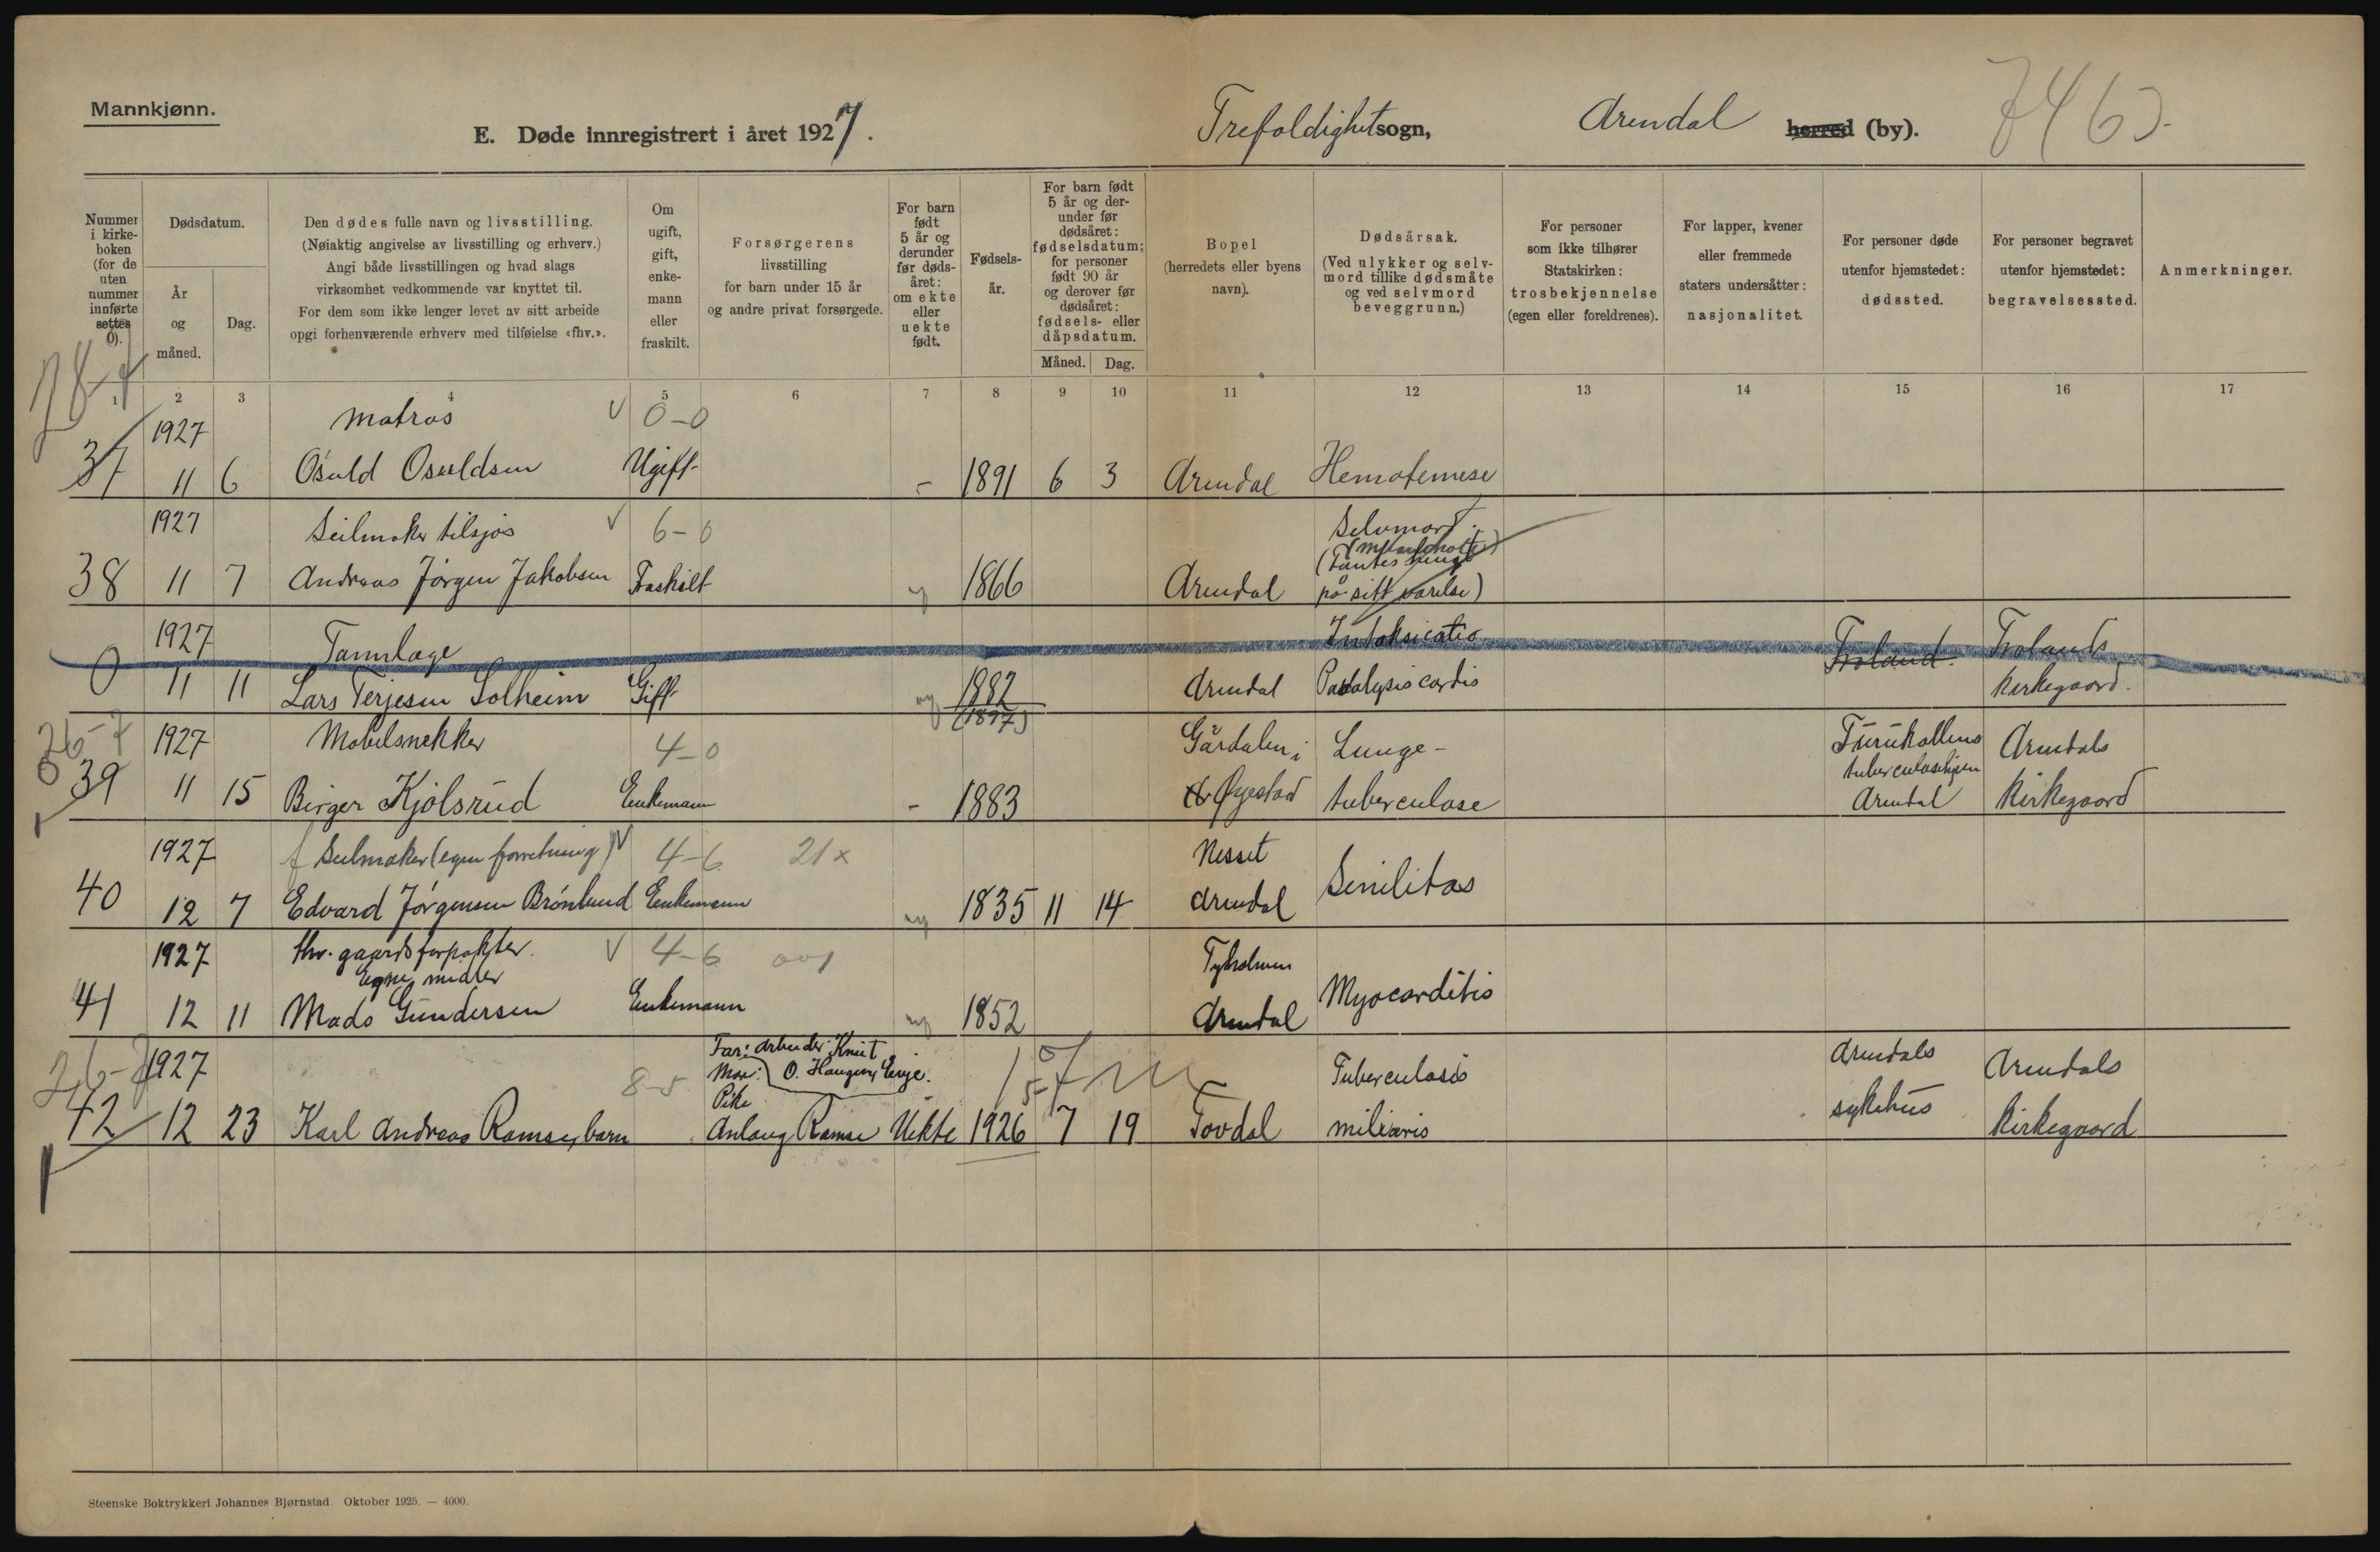 Mannkjønn.
E. Døde innregistrert i året 1927.
Trefoldighetsogn, Arendal herred (by). 7463.
Nummer i kirkeboken (for de uten nummer innførte settes 0).
Dødsdatum.
År og måned.
Dag.
Den dødes fulle navn og livsstilling.
(Nøiaktig angivelse av livsstilling og erhverv.)
Angi både livsstillingen og hvad slags
virksomhet vedkommende var knyttet til.
For dem som ikke lenger levet av sitt arbeide
opgi forhenværende erhverv med tilføielse «fhv.».
Om ugift, gift, enkemann eller fraskilt.
Forsørgerens livsstilling
for barn under 15 år
og andre privat forsørgede.
For barn født 5 år og derunder før dødsåret: om ekte eller uekte født.
Fødselsår.
For barn født 5 år og derunder før dødsåret: fødselsdatum; for personer født 90 år og derover før dødsåret: fødsels- eller dåpsdatum.
Måned. Dag.
Bopel
(herredets eller byens navn).
Dødsårsak.
(Ved ulykker og selvmord tillike dødsmåte og ved selvmord beveggrunn.)
For personer som ikke tilhører Statskirken: trosbekjennelse (egen eller foreldrenes).
For lapper, kvener eller fremmede staters undersåtter: nasjonalitet.
For personer døde utenfor hjemstedet: dødssted.
For personer begravet utenfor hjemstedet: begravelsessted.
Anmerkninger.
1 2 3 4 5 6 7 8 9 10 11 12 13 14 15 16 17
1927 Matros 0-0
37 11 6 Osuld Osuldsen Ugift - 1891 6 3 Arendal Hemotemese
1927 Seilmaker tilsjøs 6-0 Selvmord.
(Fantes hengt
38 11 7 Andreas Jørgen Jakobsen Fraskilt 1866 Arendal på sitt værelse)
1927 Tannlæge Intoksicatio Froland. Frolands
0 11 11 Lars Terjesen Solheim Gift 1882 Arendal Paralysis cordis kirkegaard.
(1897)
26-7
1927 Møbelsnekker 4-0 Gårdalen i Lunge- Furukollens Arendals
tuberculosehjem
39 11 15 Birger Kjølsrud Enkemann - 1883 Øyestad tuberculose Arendal Kirkegaard
1927 f Seilmaker (egen forretning) 4-6 21x Nesset
40 12 7 Edvard Jørgensen Brønlund Enkemann 1835 11 14 Arendal Senilitas
1927 fhv. gaardsforpakter 4-6 001 Tyholmen
Egne midler
41 12 11 Mads Gundersen Enkemann 1852 Arendal Myocarditis
26-7 1927 Far: Arbeider Knut Tuberculosis Arendals Arendals
8-5 Mor: O. Haugen, Evje.
Pike
42 12 23 Karl Andreas Ramse, barn Anlaug Ramse Uekte 1926 7 19 Tovdal miliaris sykehus Kirkegaard
Steenske Boktrykkeri Johannes Bjørnstad. Oktober 1925. — 4000.